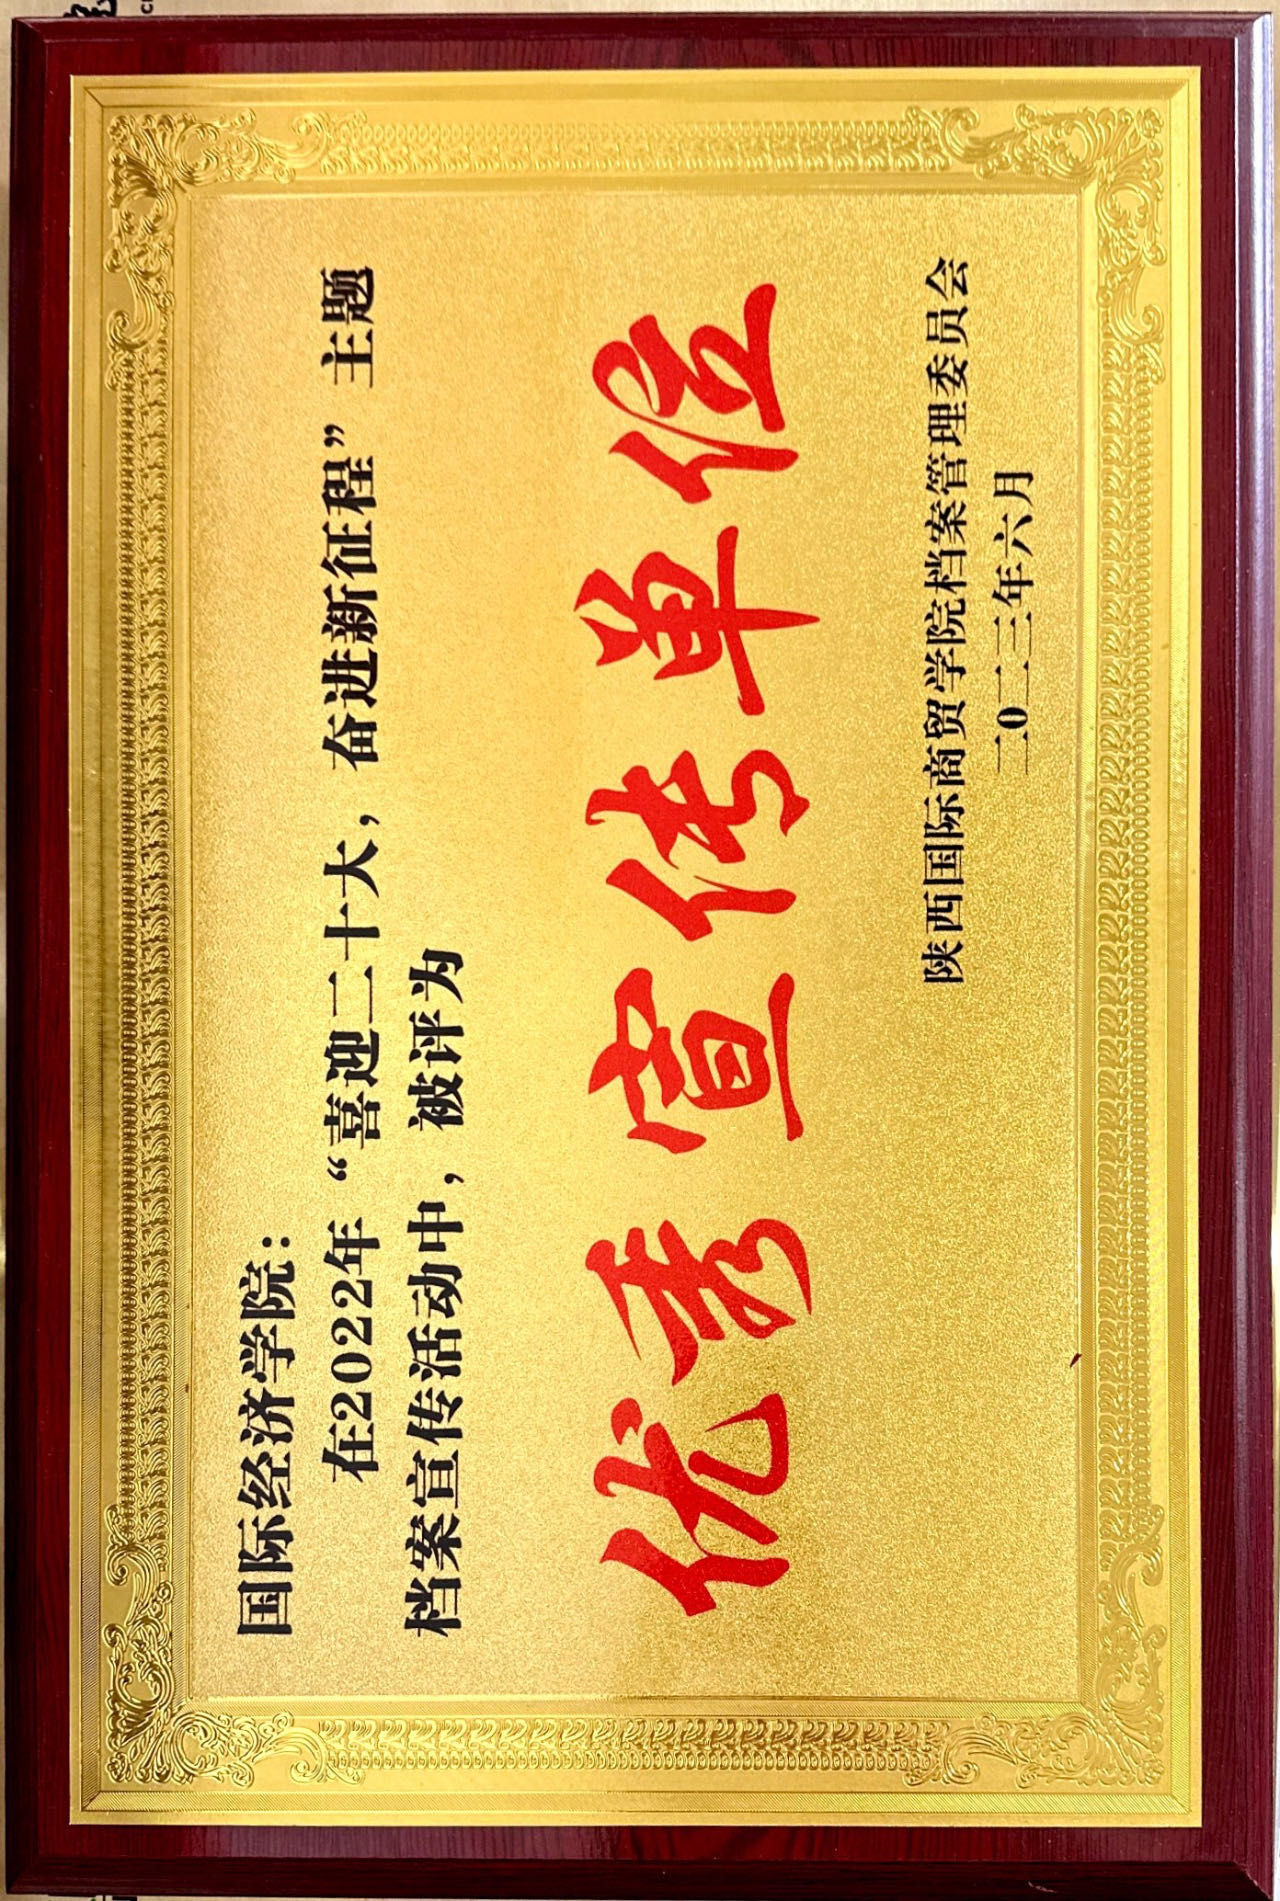 国际经济学院：
在2022年“喜迎二十大，奋进新征程”主题
档案宣传活动中，被评为
优秀宣传单位
陕西国际商贸学院档案管理委员会
二0二三年六月